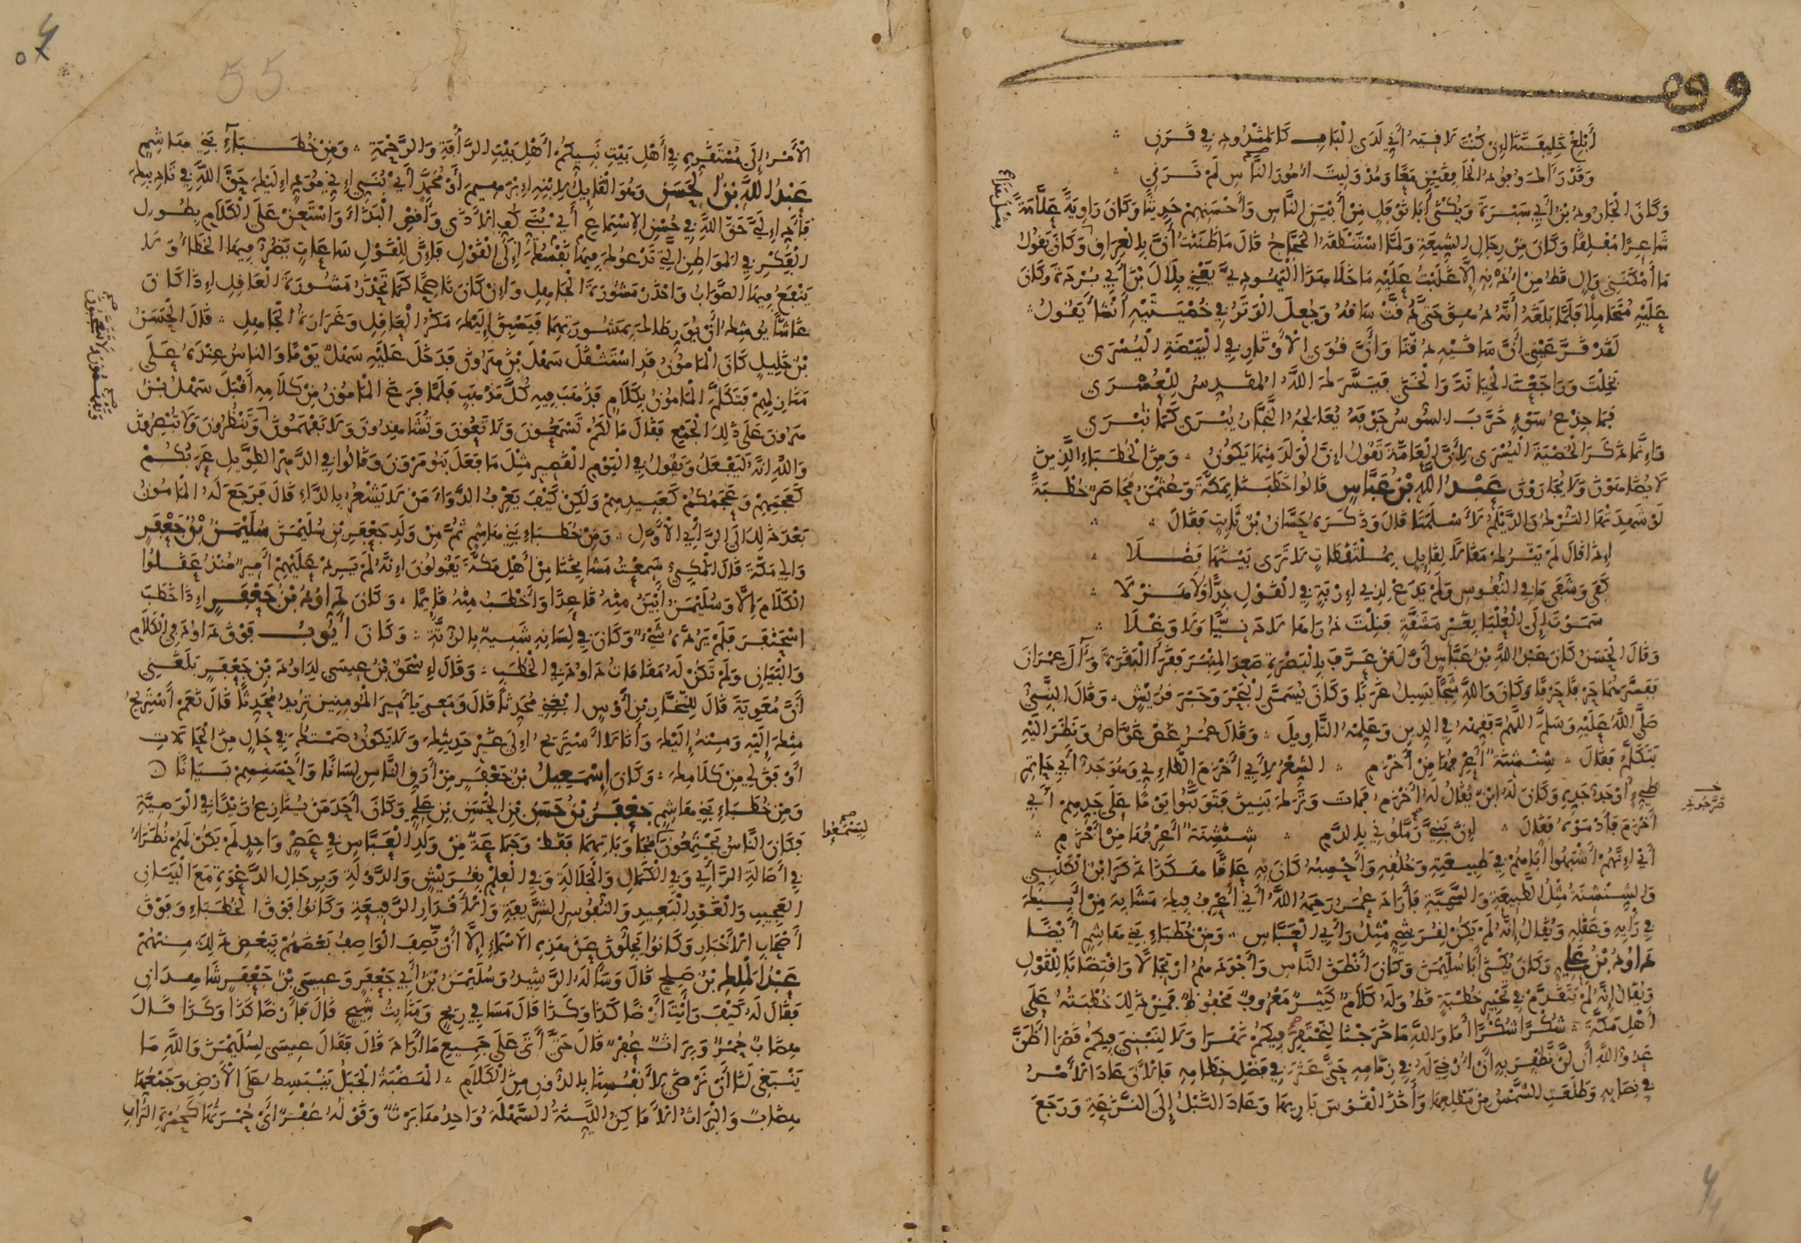 وقف
أَبْلِغْ خَلِيفَتَنَا إِنْ كُنْتَ لَاقِيَهُ أَنِّي لَدَى الْبَابِ كَالْمَشْدُودِ فِي قَرَنِ
وَقَدْ رَآكَ وُفُودُ الْخَافِقَيْنِ مَعًا وَمُذْ وَلِيتَ أُمُورَ النَّاسِ لَمْ تَرَنِي
وَكَانَ الْجَارُودُ بْنُ أَبِي سَبْرَةَ وَيُكْنَى أَبَا نَوْفَلٍ مِنْ أَبْيَنِ النَّاسِ وَأَحْسَنِهِمْ حَدِيثًا وَكَانَ رَاوِيَةً عَلَّامَةً
شَاعِرًا مُفْلِقًا وَكَانَ مِنْ رِجَالِ الشِّيعَةِ وَلَمَّا اسْتَنْطَقَهُ الْحَجَّاجُ قَالَ مَا ظَنَنْتُ أَنَّ بِالْعِرَاقِ وَكَانَ يَقُولُ
مَا أَمْكَنَنِي وَالٍ قَطُّ مِنْ أُذُنِهِ إِلَّا غَلَبْتُ عَلَيْهِ مَا خَلَا هَذَا الْيَهُودِيَّ يَعْنِي بِلَالَ بْنَ أَبِي بُرْدَةَ وَكَانَ
عَلَيْهِ مُتَحَامِلًا فَلَمَّا بَلَغَهُ أَنَّهُ دُهِقَ حَتَّى دُقَّتْ سَاقُهُ وَجُعِلَ الْوَتَرُ فِي خُصْيَتَيْهِ أَنْشَأَ يَقُولُ
لَقَدْ قَرَّ عَيْنِي أَنَّ سَاقَيْهِ دُقَّتَا وَأَنَّ قُوَى الْأَوْتَارِ فِي الْبَيْضَةِ الْيُسْرَى
بَخِلْتَ وَرَاجَعْتَ الْخِيَانَةَ وَالْخَنَى فَيَسَّرَكَ اللَّهُ الْمُقَدِّسُ لِلْعُسْرَى
فَمَا جِذْعُ سَوْءٍ خَرَّبَ السُّوسُ جَوْفَهُ يُعَالِجُهُ النَّجَّارُ يُبْرَى كَمَا تُبْرَى
فَإِنَّمَا ذَكَرَ الْخُصْيَةَ الْيُسْرَى لِأَنَّ الْعَامَّةَ تَقُولُ إِنَّ الْوَلَدَ مِنْهَا يَكُونُ وَمِنَ الْخُطَبَاءِ الَّذِينَ
لَا يُضَاهَوْنَ وَلَا يُجَارَوْنَ عَبْدُ اللَّهِ بْنُ عَبَّاسٍ قَالُوا خَطَبَنَا بِمَكَّةَ وَعُثْمَنُ مُحَاصَرٌ خُطْبَةً
لَوْ شَهِدَتْهَا التُّرْكُ وَالدَّيْلَمُ لَأَسْلَمَتَا قَالَ وَذَكَرَهُ حَسَّانُ بْنُ ثَابِتٍ فَقَالَ
إِذَا قَالَ لَمْ يَتْرُكْ مَقَالًا لِقَائِلٍ بِمُلْتَقَطَاتٍ لَا تَرَى بَيْنَهَا فَضْلَا
كَفَى وَشَفَى مَا فِي النُّفُوسِ وَلَمْ يَدَعْ لِذِي إِرْبَةٍ فِي الْقَوْلِ جِدًّا وَلَا هَزْلَا
سَمَوْتَ إِلَى الْعُلْيَا بِغَيْرِ مَشَقَّةٍ فَنِلْتَ ذُرَاهَا لَا دَنِيًّا وَلَا وَغْلَا
وَقَالَ الْحَسَنُ كَانَ عَبْدُ اللَّهِ بْنُ عَبَّاسٍ أَوَّلَ مَنْ عَرَّفَ بِالْبَصْرَةِ صَعِدَ الْمِنْبَرَ فَقَرَأَ الْبَقَرَةَ وَآلَ عِمْرَانَ
فَفَسَّرَهُمَا حَرْفًا حَرْفًا وَكَانَ وَاللَّهِ مِثَجًّا يَسِيلُ غَرْبًا وَكَانَ يُسَمَّى الْبَحْرَ وَحَبْرَ قُرَيْشٍ وَقَالَ النَّبِيُّ
صَلَّى اللَّهُ عَلَيْهِ وَسَلَّمَ اللَّهُمَّ فَقِّهْهُ فِي الدِّينِ وَعَلِّمْهُ التَّأْوِيلَ وَقَالَ عُمَرُ غُصْ غَوَّاصُ وَنَظَرَ إِلَيْهِ
يَتَكَلَّمُ فَقَالَ شِنْشِنَةٌ أَعْرِفُهَا مِنْ أَخْزَمِ الشِّعْرُ لِأَبِي أَخْزَمَ الطَّائِيِّ وَهُوَ جَدُّ أَبِي حَاتِمِ
طَيِّءٍ أَوْ جَدُّ جَدِّهِ وَكَانَ لَهُ ابْنٌ يُقَالُ لَهُ أَخْزَمُ فَمَاتَ وَتَرَكَ بَنِينَ فَتَوَثَّبُوا يَوْمًا عَلَى جَدِّهِمْ أَبِي
أَخْزَمَ فَأَدْمَوْهُ فَقَالَ إِنَّ بَنِيَّ رَمَّلُونِي بِالدَّمِ شِنْشِنَةٌ أَعْرِفُهَا مِنْ أَخْزَمِ
أَيْ إِنَّهُمْ أَشْبَهُوا أَبَاهُمْ فِي طَبِيعَتِهِ وَخُلُقِهِ وَأَحْسِبُهُ كَانَ بِهِ عَاقًّا هَكَذَا ذَكَرَ ابْنُ الْكَلْبِيِّ
وَالشِّنْشِنَةُ مِثْلُ الطَّبِيعَةِ وَالسَّجِيَّةِ فَأَرَادَ عُمَرُ رَحِمَهُ اللَّهُ أَنِّي أَعْرِفُ فِيكَ مَشَابِهَ مِنْ أَبِيكَ
فِي رَأْيِهِ وَعَقْلِهِ وَيُقَالُ إِنَّهُ لَمْ يَكُنْ لِقُرَشِيٍّ مِثْلُ رَأْيِ الْعَبَّاسِ وَمِنْ خُطَبَاءِ بَنِي هَاشِمٍ أَيْضًا
دَاوُدُ بْنُ عَلِيٍّ وَكَانَ يُكْنَى أَبَا سُلَيْمَنَ وَكَانَ أَنْطَقَ النَّاسِ وَأَجْوَدَهُمُ ارْتِجَالًا وَاقْتِضَابًا لِلْقَوْلِ
وَيُقَالُ إِنَّهُ لَمْ يَتَقَدَّمْ فِي تَحْبِيرِ خُطْبَةٍ قَطُّ وَلَهُ كَلَامٌ كَثِيرٌ مَعْرُوفٌ مَحْفُوظٌ فَمِنْ ذَلِكَ خُطْبَتُهُ عَلَى
أَهْلِ مَكَّةَ شُكْرًا شُكْرًا أَمَا وَاللَّهِ مَا خَرَجْنَا لِنَحْتَفِرَ فِيكُمْ نَهْرًا وَلَا لِنَبْنِيَ فِيكُمْ قَصْرًا أَظَنَّ
عَدُوُّ اللَّهِ أَنْ لَنْ نَظْفَرَ بِهِ أَنْ أُرْخِيَ لَهُ فِي زِمَامِهِ حَتَّى عَثَرَ فِي فَضْلِ خِطَامِهِ فَالْآنَ عَادَ الْأَمْرُ
فِي نِصَابِهِ وَطَلَعَتِ الشَّمْسُ مِنْ مَطْلَعِهَا وَأَخَذَ الْقَوْسَ بَارِيهَا وَعَادَ النَّبْلُ إِلَى النَّزَعَةِ وَرَجَعَ
55
الْأَمْرُ إِلَى مُسْتَقَرِّهِ فِي أَهْلِ بَيْتِ نَبِيِّكُمْ أَهْلِ بَيْتِ الرَّأْفَةِ وَالرَّحْمَةِ وَمِنْ خُطَبَاءِ بَنِي هَاشِمٍ
عَبْدُ اللَّهِ بْنُ الْحَسَنِ وَهُوَ الْقَائِلُ لِابْنِهِ إِبْرَهِيمَ أَوْ مُحَمَّدٍ أَيْ بُنَيَّ إِنِّي مُؤَدٍّ إِلَيْكَ حَقَّ اللَّهِ فِي تَأْدِيبِكَ
فَأَدِّ إِلَيَّ حَقَّ اللَّهِ فِي حُسْنِ الِاسْتِمَاعِ أَيْ بُنَيَّ كُفَّ الْأَذَى وَارْفُضِ الْبَذَاءَ وَاسْتَعِنْ عَلَى الْكَلَامِ بِطُولِ
الْفِكْرِ فِي الْمَوَاطِنِ الَّتِي تَدْعُوكَ فِيهَا نَفْسُكَ إِلَى الْقَوْلِ فَإِنَّ لِلْقَوْلِ سَاعَاتٍ يَضُرُّ فِيهَا الْخَطَأُ وَلَا
يَنْفَعُ فِيهَا الصَّوَابُ وَاحْذَرْ مَشُورَةَ الْجَاهِلِ وَإِنْ كَانَ نَاصِحًا كَمَا تَحْذَرُ مَشُورَةَ الْعَاقِلِ إِذَا كَانَ
غَاشًّا يُوشِكُ أَنْ يُوَرِّطَاكَ بِمَشُورَتِهِمَا فَيَسْبِقَ إِلَيْكَ مَكْرُ الْعَاقِلِ وَغَرَارَةُ الْجَاهِلِ قَالَ الْحَسَنُ
بْنُ خَلِيلٍ كَانَ الْمَأْمُونُ قَدِ اسْتَثْقَلَ سَهْلَ بْنَ هَرُونَ فَدَخَلَ عَلَيْهِ سَهْلٌ يَوْمًا وَالنَّاسُ عِنْدَهُ عَلَى
مَنَازِلِهِمْ فَتَكَلَّمَ الْمَأْمُونُ بِكَلَامٍ فَذَهَبَ فِيهِ كُلَّ مَذْهَبٍ فَلَمَّا فَرَغَ الْمَأْمُونُ مِنْ كَلَامِهِ أَقْبَلَ سَهْلُ بْنُ
هَرُونَ عَلَى ذَلِكَ الْجَمْعِ فَقَالَ مَا لَكُمْ تَسْمَعُونَ وَلَا تَعُونَ وَتُشَاهِدُونَ وَلَا تَفْهَمُونَ وَتَنْظُرُونَ وَلَا تُبْصِرُونَ
وَاللَّهِ إِنَّهُ لَيَفْعَلُ وَيَقُولُ فِي الْيَوْمِ الْقَصِيرِ مِثْلَ مَا فَعَلَ بَنُو مَرْوَنَ وَقَالُوا فِي الدَّهْرِ الطَّوِيلِ عَرَبُكُمْ
كَعَجَمِهِمْ وَعَجَمُكُمْ كَعَبِيدِهِمْ وَلَكِنْ كَيْفَ يَعْرِفُ الدَّوَاءَ مَنْ لَا يَشْعُرُ بِالدَّاءِ قَالَ فَرَجَعَ لَهُ الْمَأْمُونُ
بَعْدَ ذَلِكَ إِلَى الرَّأْيِ الْأَوَّلِ وَمِنْ خُطَبَاءِ بَنِي هَاشِمٍ ثُمَّ مِنْ وَلَدِ جَعْفَرِ بْنِ سُلَيْمَنَ سُلَيْمَنُ بْنُ جَعْفَرٍ
وَالِي مَكَّةَ قَالَ الْمَكِّيُّ سَمِعْتُ مَشَايِخَنَا مِنْ أَهْلِ مَكَّةَ يَقُولُونَ إِنَّهُ لَمْ يَرِدْ عَلَيْهِمْ أَمِيرٌ مُنْذُ عَقَلُوا
الْكَلَامَ إِلَّا وَسُلَيْمَنُ أَبْيَنُ مِنْهُ قَاعِدًا وَأَخْطَبُ مِنْهُ قَائِمًا وَكَانَ دَاوُدُ بْنُ جَعْفَرٍ إِذَا خَطَبَ
اسْحَنْفَرَ فَلَمْ يَرُدَّهُ شَيْءٌ وَكَانَ فِي لِسَانِهِ شَبِيهٌ بِالرُّتَّةِ وَكَانَ أَيُّوبُ فَوْقَ دَاوُدَ فِي الْكَلَامِ
وَالْبَيَانِ وَلَمْ تَكُنْ لَهُ مَقَامَاتُ دَاوُدَ فِي الْخُطَبِ وَقَالَ إِسْحَقُ بْنُ عِيسَى لِدَاوُدَ بْنِ جَعْفَرٍ بَلَغَنِي
أَنَّ مُعَوِيَةَ قَالَ لِلنَّخَّارِ بْنِ أَوْسٍ ابْغِنِي مُحَدِّثًا قَالَ وَمَعِي يَا أَمِيرَ الْمُومِنِينَ تُرِيدُ مُحَدِّثًا قَالَ نَعَمْ أَسْتَرِيحُ
مِنْكَ إِلَيْهِ وَمِنْهُ إِلَيْكَ وَأَنَا لَا أَسْتَرِيحُ إِلَى غَيْرِ حَدِيثِكَ وَلَا يَكُونُ صَمْتُكَ فِي حَالٍ مِنَ الْحَالَاتِ
أَوْفَقَ لِي مِنْ كَلَامِكَ وَكَانَ إِسْمَعِيلُ بْنُ جَعْفَرٍ مِنْ أَرَقِّ النَّاسِ لِسَانًا وَأَحْسَنِهِمْ بَيَانًا
وَمِنْ خُطَبَاءِ بَنِي هَاشِمٍ جَعْفَرُ بْنُ حَسَنِ بْنِ الْحَسَنِ بْنِ عَلِيٍّ وَكَانَ أَحَدَ مَنْ يُنَازِعُ زَيْدًا فِي الْوَصِيَّةِ
فَكَانَ النَّاسُ يَجْتَمِعُونَ لِيَسْمَعُوا مُجَاوَبَاتِهِمَا فَقَطْ وَجَمَاعَةٌ مِنْ وَلَدِ الْعَبَّاسِ فِي عَصْرٍ وَاحِدٍ لَمْ يَكُنْ لَهُمْ نُظَرَاءُ
فِي أَصَالَةِ الرَّأْيِ وَفِي الْكَمَالِ وَالْجَلَالَةِ وَفِي الْعِلْمِ بِقُرَيْشٍ وَالدَّوْلَةِ وَبِرِجَالِ الدَّعْوَةِ مَعَ الْبَيَانِ
الْعَجِيبِ وَالْغَوْرِ الْبَعِيدِ وَالنُّفُوسِ الشَّرِيفَةِ وَالْأَقْدَارِ الرَّفِيعَةِ وَكَانُوا فَوْقَ الْخُطَبَاءِ وَفَوْقَ
أَصْحَابِ الْأَخْبَارِ وَكَانُوا يَجِلُّونَ عَنْ هَذِهِ الْأَسْمَاءِ إِلَّا أَنْ يَصِفَ الْوَاصِفُ بَعْضَهُمْ بِبَعْضِ ذَلِكَ مِنْهُمْ
عَبْدُ الْمَلِكِ بْنُ صَلِحٍ قَالَ وَسَأَلَهُ الرَّشِيدُ وَسُلَيْمَنُ بْنُ أَبِي جَعْفَرٍ وَعِيسَى بْنُ جَعْفَرٍ شَاهِدَانِ
فَقَالَ لَهُ كَيْفَ رَأَيْتَ أَرْضَ كَذَا وَكَذَا قَالَ مَسَافِي رِيحٍ وَمَنَابِتُ شِيحٍ قَالَ فَأَرْضُ كَذَا وَكَذَا قَالَ
هِضَابٌ حُمْرٌ وَبِرَاثٌ عُفْرٌ قَالَ حَتَّى أَتَى عَلَى جَمِيعِ مَا أَرَادَ قَالَ فَقَالَ عِيسَى لِسُلَيْمَنَ وَاللَّهِ مَا
يَنْبَغِي لَنَا أَنْ نَرْضَى لِأَنْفُسِنَا بِالدُّونِ مِنَ الْكَلَامِ الْهَضْبَةُ الْجَبَلُ يَنْبَسِطُ عَلَى الْأَرْضِ وَجَمْعُهَا
هِضَابٌ وَالْبِرَاثُ الْأَمَاكِنُ اللَّيِّنَةُ السَّهْلَةُ وَاحِدُهَا بَرْثٌ وَقَوْلُهُ عُفْرٌ أَيْ حُمْرَتُهَا كَحُمْرَةِ التُّرَابِ
لِيَسْتَمِعُوا